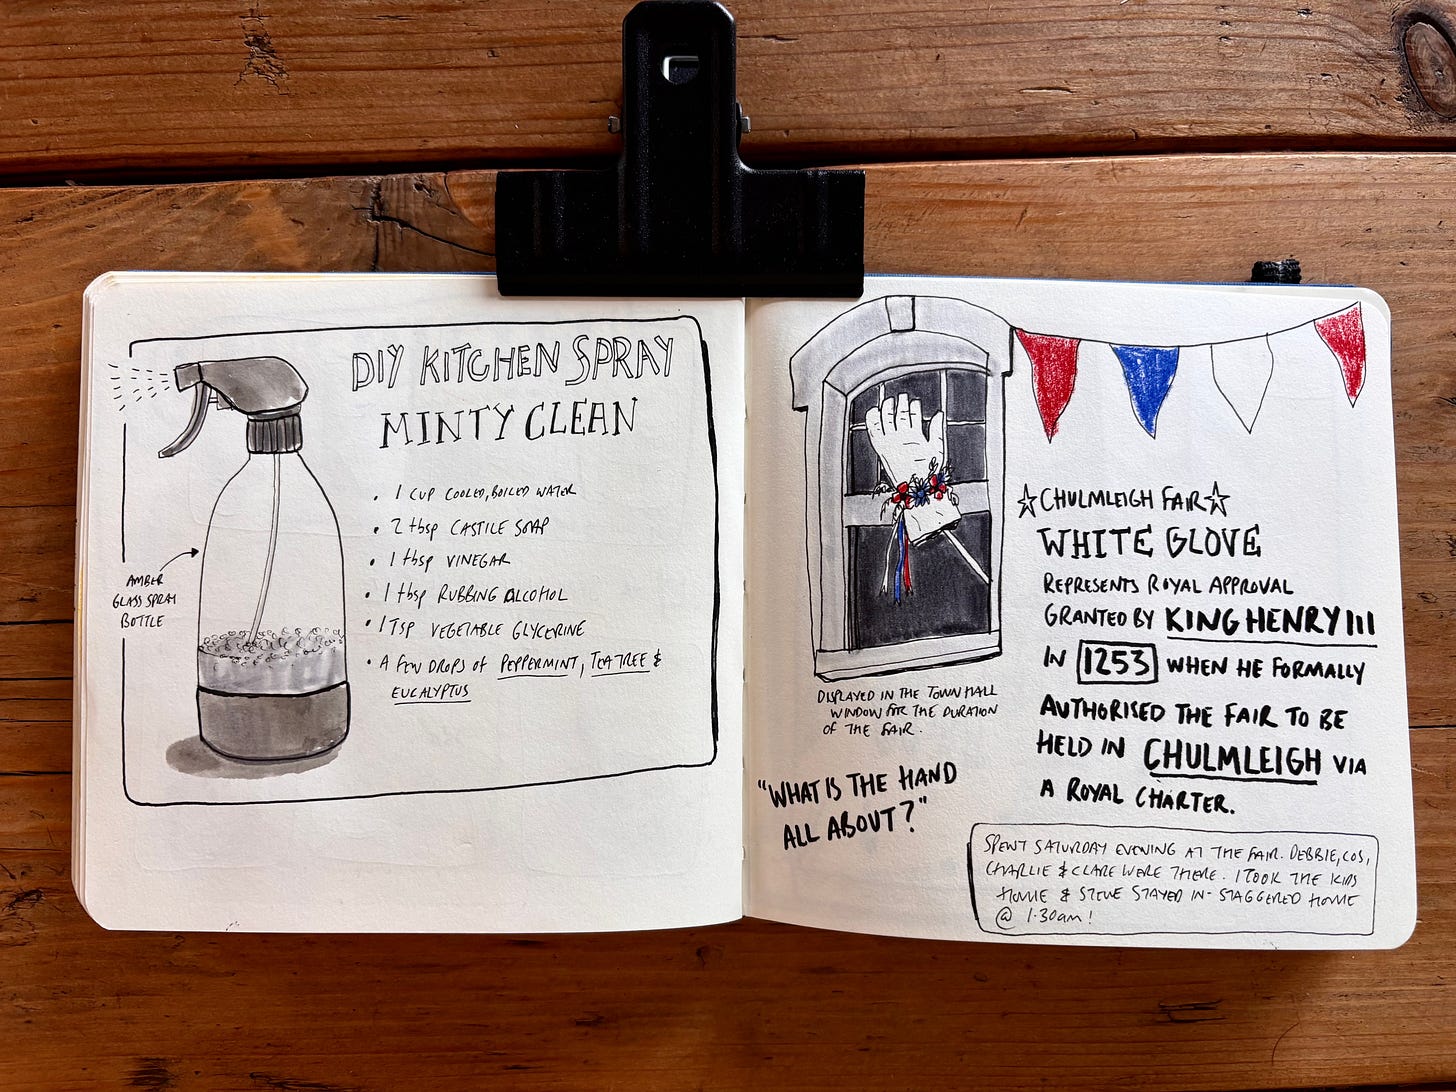 DIY KITCHEN SPRAY
MINTY CLEAN
• 1 CUP COOLED, BOILED WATER
• 2 tbsp CASTILE SOAP
• 1 tbsp VINEGAR
• 1 tbsp RUBBING ALCOHOL
• 1 TSP VEGETABLE GLYCERINE
• A FEW DROPS OF PEPPERMINT, TEA TREE &
EUCALYPTUS
AMBER
GLASS SPRAY
BOTTLE
☆ CHULMLEIGH FAIR ☆
WHITE GLOVE
REPRESENTS ROYAL APPROVAL
GRANTED BY KING HENRY III
IN 1253 WHEN HE FORMALLY
AUTHORISED THE FAIR TO BE
HELD IN CHULMLEIGH VIA
A ROYAL CHARTER.
DISPLAYED IN THE TOWN HALL
WINDOW FOR THE DURATION
OF THE FAIR.
"WHAT IS THE HAND
ALL ABOUT?"
SPENT SATURDAY EVENING AT THE FAIR. DEBBIE, COS,
CHARLIE & CLARE WERE THERE. I TOOK THE KIDS
HOME & STEVE STAYED IN - STAGGERED HOME
@ 1.30am!